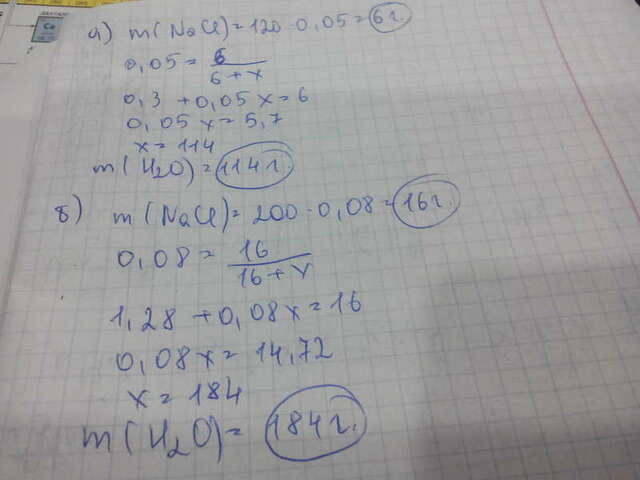 Ca
а) m(NaCl)=120·0,05=6г.
0,05 = 6/(6+x)
0,3 +0,05x=6
0,05x=5,7
x=114
m(H₂O)=114г.
б) m(NaCl)=200·0,08=16г.
0,08 = 16/(16+x)
1,28 +0,08x=16
0,08x=14,72
x=184
m(H₂O)=184г.